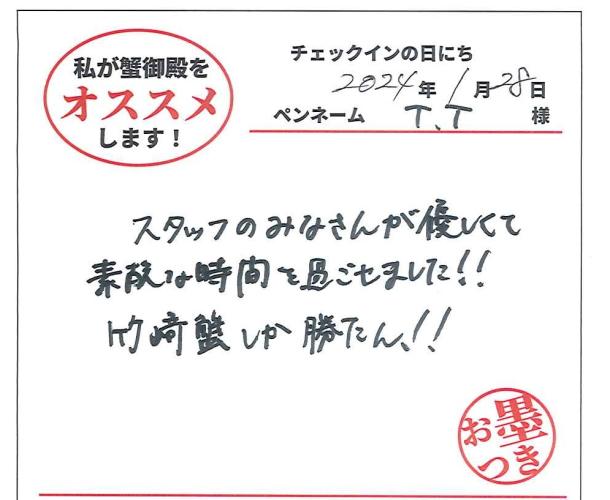 私が蟹御殿を
オススメ
します！
チェックインの日にち
2024年1月28日
ペンネーム T.T 様
スタッフのみなさんが優しくて
素敵な時間を過ごせました!!
竹崎蟹しか勝たん!!
お墨
つき